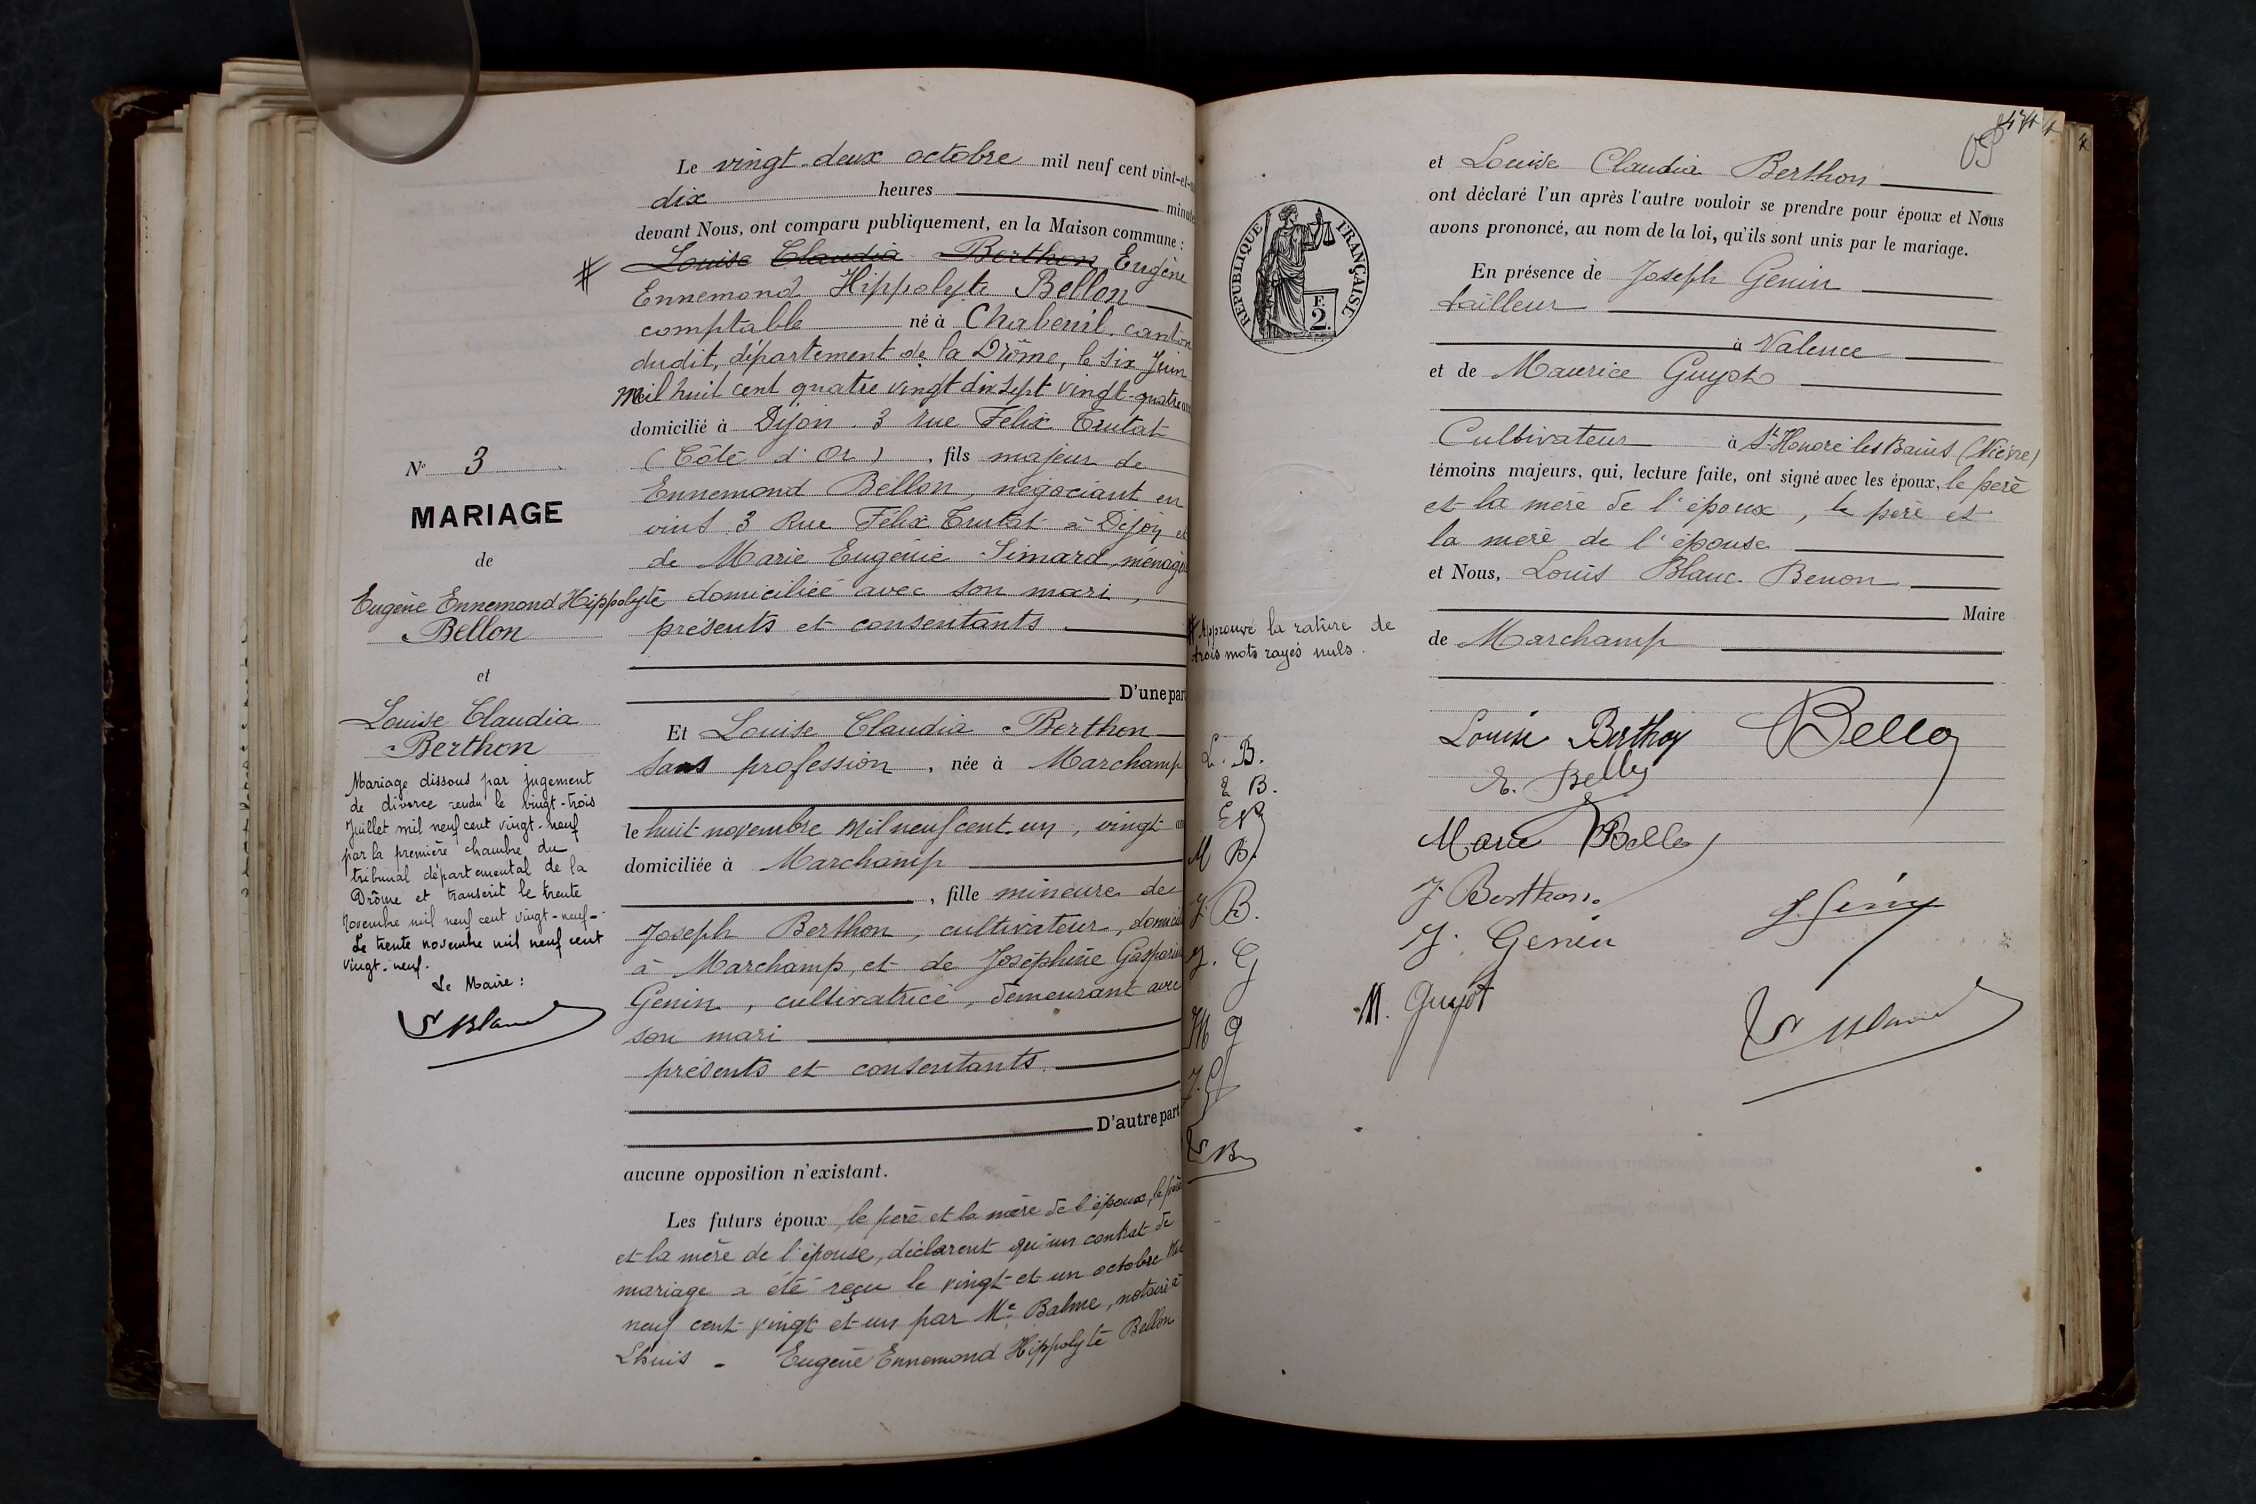 Le vingt-deux octobre mil neuf cent vint-et-un
dix heures minutes
devant Nous, ont comparu publiquement, en la Maison commune :
# Louise Claudia Berthon Eugène
Ennemond Hippolyte Bellon
comptable né à Chabeuil, canton
dudit, département de la Drôme, le six Juin
Mil huit cent quatre vingt dix sept vingt-quatre ans
domicilié à Dijon 3 rue Félix Trutat
(Côte d'Or), fils majeur de
Ennemond Bellon, négociant en
vins 3 Rue Félix Trutat à Dijon et
de Marie Eugénie Simard, ménagère
domiciliée avec son mari,
présents et consentants
D'une part
Et Louise Claudia Berthon
Sans profession, née à Marchamp
le huit novembre mil neuf cent un, vingt ans
domiciliée à Marchamp
, fille mineure de
Joseph Berthon, cultivateur, domicilié
à Marchamp, et de Joséphine Gasparine
Genin, cultivatrice, demeurant avec
son mari
présents et consentants.
D'autre part
aucune opposition n'existant.
Les futurs époux, le père et la mère de l'époux, le père
et la mère de l'épouse, déclarent qu'un contrat de
mariage a été reçu le vingt-et un octobre Mil
neuf cent vingt et un par Me Balme, notaire à
Lhuis - Eugène Ennemond Hippolyte Bellon
N° 3
MARIAGE
de
Eugène Ennemond Hippolyte
Bellon
et
Louise Claudia
Berthon
Mariage dissous par jugement
de divorce rendu le vingt-trois
Juillet mil neuf cent vingt-neuf
par la première chambre du
tribunal départemental de la
Drôme et transcrit le trente
Novembre mil neuf cent vingt-neuf-
Le trente novembre mil neuf cent
vingt-neuf.
Le Maire :
L Blanc
# Approuvé la rature de
trois mots rayés nuls.
L. B.
E B.
E B
M B.
J. B.
J. G
M G
J. G
L B
RÉPUBLIQUE FRANÇAISE
F.
2.
474
et Louise Claudia Berthon
ont déclaré l'un après l'autre vouloir se prendre pour époux et Nous
avons prononcé, au nom de la loi, qu'ils sont unis par le mariage.
En présence de Joseph Genin
tailleur
à Valence
et de Maurice Guyot
Cultivateur à St Honoré les Bains (Nièvre)
témoins majeurs, qui, lecture faite, ont signé avec les époux, le père
et la mère de l'époux, le père et
la mère de l'épouse
et Nous, Louis Blanc-Benon
Maire
de Marchamp
Louise Berthon Bellon
E. Bellon
Marie Bellon
J. Berthon
J. Genin
J. Genin
M. Guyot
L Blanc